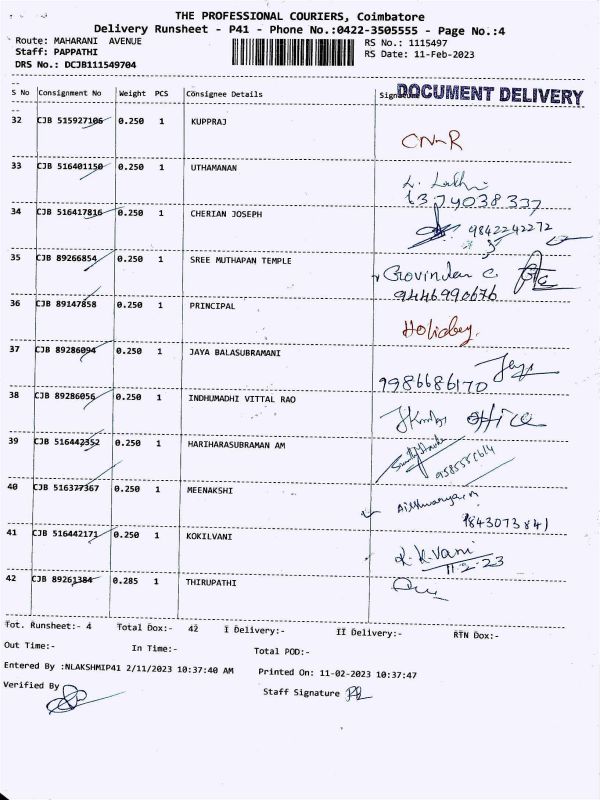 THE PROFESSIONAL COURIERS, Coimbatore
Delivery Runsheet - P41 - Phone No.:0422-3505555 - Page No.:4
Route: MAHARANI AVENUE RS No.: 1115497
Staff: PAPPATHI RS Date: 11-Feb-2023
DRS No.: DCJB111549704
DOCUMENT DELIVERY
S No Consignment No Weight PCS Consignee Details Signature
32 CJB 515927106 0.250 1 KUPPRAJ
33 CJB 516401150 0.250 1 UTHAMANAN
34 CJB 516417816 0.250 1 CHERIAN JOSEPH
9842242272
35 CJB 89266854 0.250 1 SREE MUTHAPAN TEMPLE
Govinden C.
9446990676
36 CJB 89147858 0.250 1 PRINCIPAL
Holiday.
37 CJB 89286094 0.250 1 JAYA BALASUBRAMANI
9986686170
38 CJB 89286056 0.250 1 INDHUMADHI VITTAL RAO
office
39 CJB 516442352 0.250 1 HARIHARASUBRAMAN AM
40 CJB 516377367 0.250 1 MEENAKSHI
9843073841
41 CJB 516442171 0.250 1 KOKILVANI
K.K.Vani
11-2-23
42 CJB 89261384 0.285 1 THIRUPATHI
Tot. Runsheet:- 4 Total Dox:- 42 I Delivery:- II Delivery:- RTN Dox:-
Out Time:- In Time:- Total POD:-
Entered By :NLAKSHMIP41 2/11/2023 10:37:40 AM Printed On: 11-02-2023 10:37:47
Verified By Staff Signature